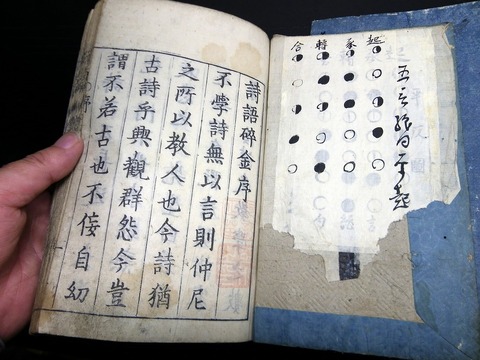 五言絶句平起
起
承
轉
合
詩語碎金序
不學詩無以言則仲尼
之所以教人也今詩猶
古詩乎興觀群怨今豈
謂不若古也不佞自幼